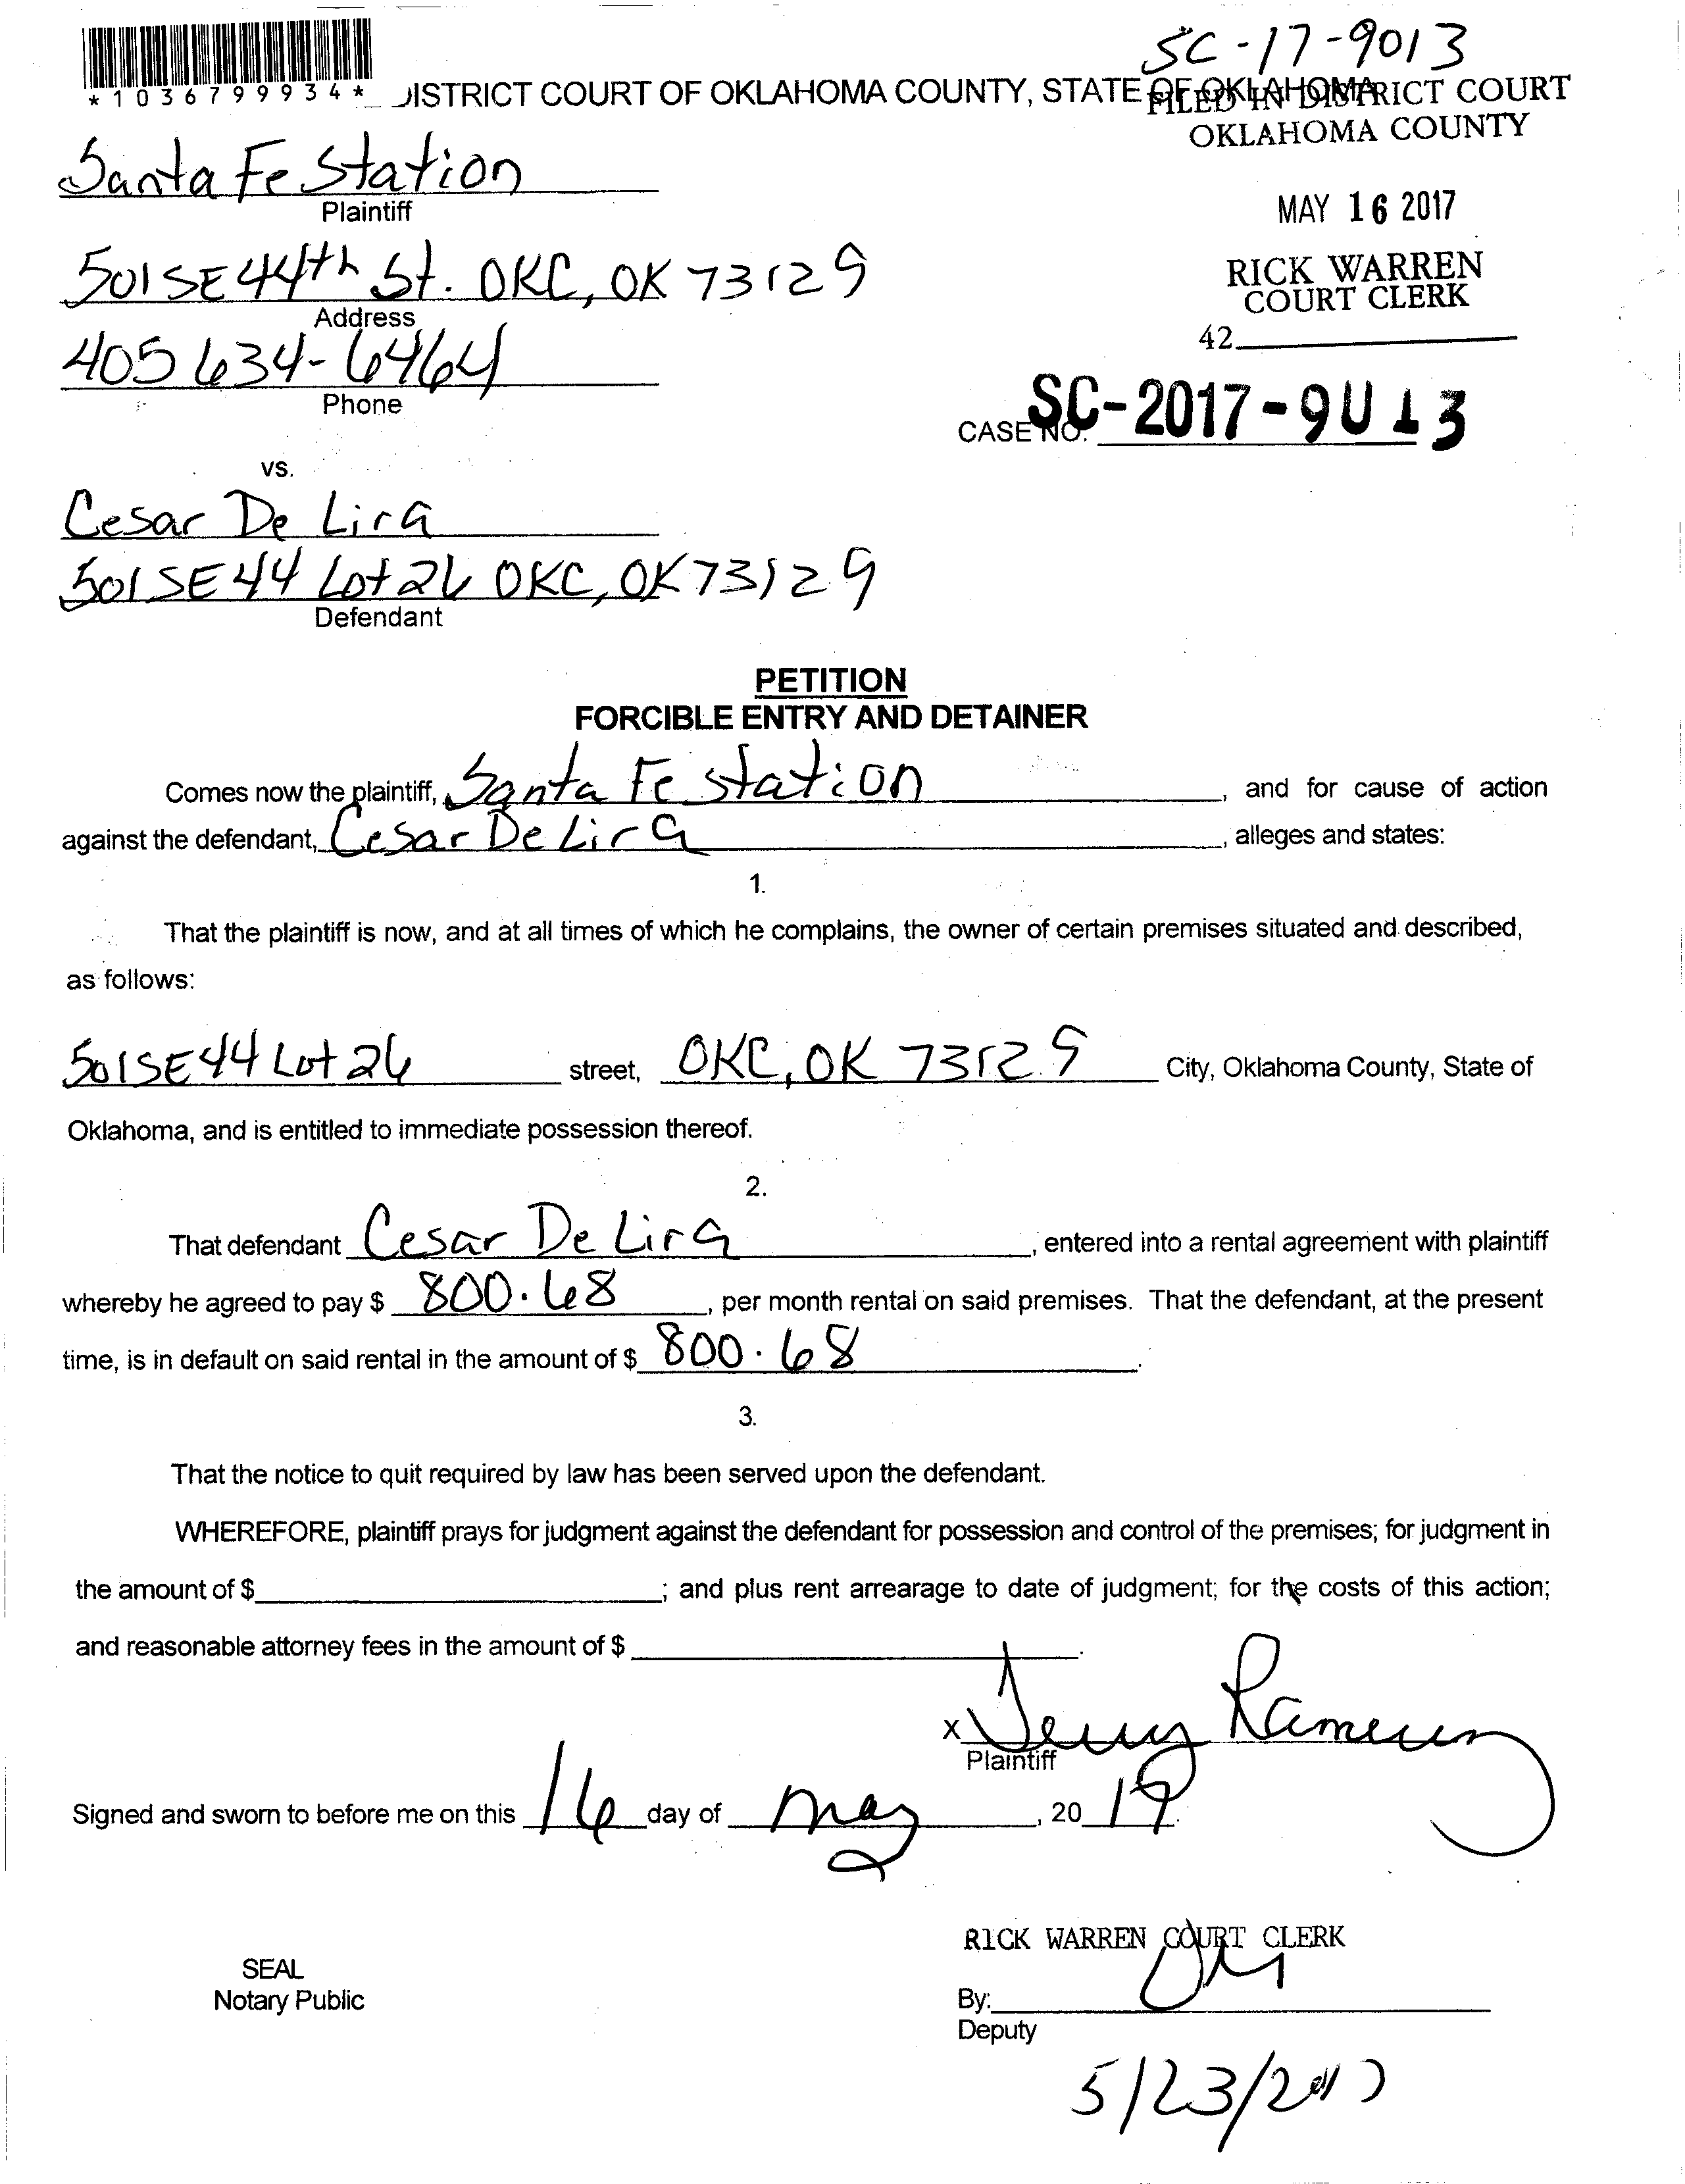 SC-17-9013
*1036799934* DISTRICT COURT OF OKLAHOMA COUNTY, STATE OF OKLAHOMA
FILED IN DISTRICT COURT
OKLAHOMA COUNTY
MAY 16 2017
RICK WARREN
COURT CLERK
42
Santa Fe Station
Plaintiff
501 SE 44th St. OKC, OK 73129
Address
405 634-6464
Phone
CASE NO. SC-2017-9013
vs.
Cesar De Lira
501 SE 44 Lot 26 OKC, OK 73129
Defendant
PETITION
FORCIBLE ENTRY AND DETAINER
Comes now the plaintiff, Santa Fe Station, and for cause of action
against the defendant, Cesar De Lira, alleges and states:
1.
That the plaintiff is now, and at all times of which he complains, the owner of certain premises situated and described,
as follows:
501 SE 44 Lot 26 street, OKC, OK 73129 City, Oklahoma County, State of
Oklahoma, and is entitled to immediate possession thereof.
2.
That defendant Cesar De Lira, entered into a rental agreement with plaintiff
whereby he agreed to pay $ 800.68, per month rental on said premises. That the defendant, at the present
time, is in default on said rental in the amount of $ 800.68.
3.
That the notice to quit required by law has been served upon the defendant.
WHEREFORE, plaintiff prays for judgment against the defendant for possession and control of the premises; for judgment in
the amount of $ ; and plus rent arrearage to date of judgment; for the costs of this action;
and reasonable attorney fees in the amount of $ .
x
Plaintiff
Signed and sworn to before me on this 16 day of May, 20 17.
RICK WARREN COURT CLERK
SEAL
Notary Public
By:
Deputy
5/23/2017